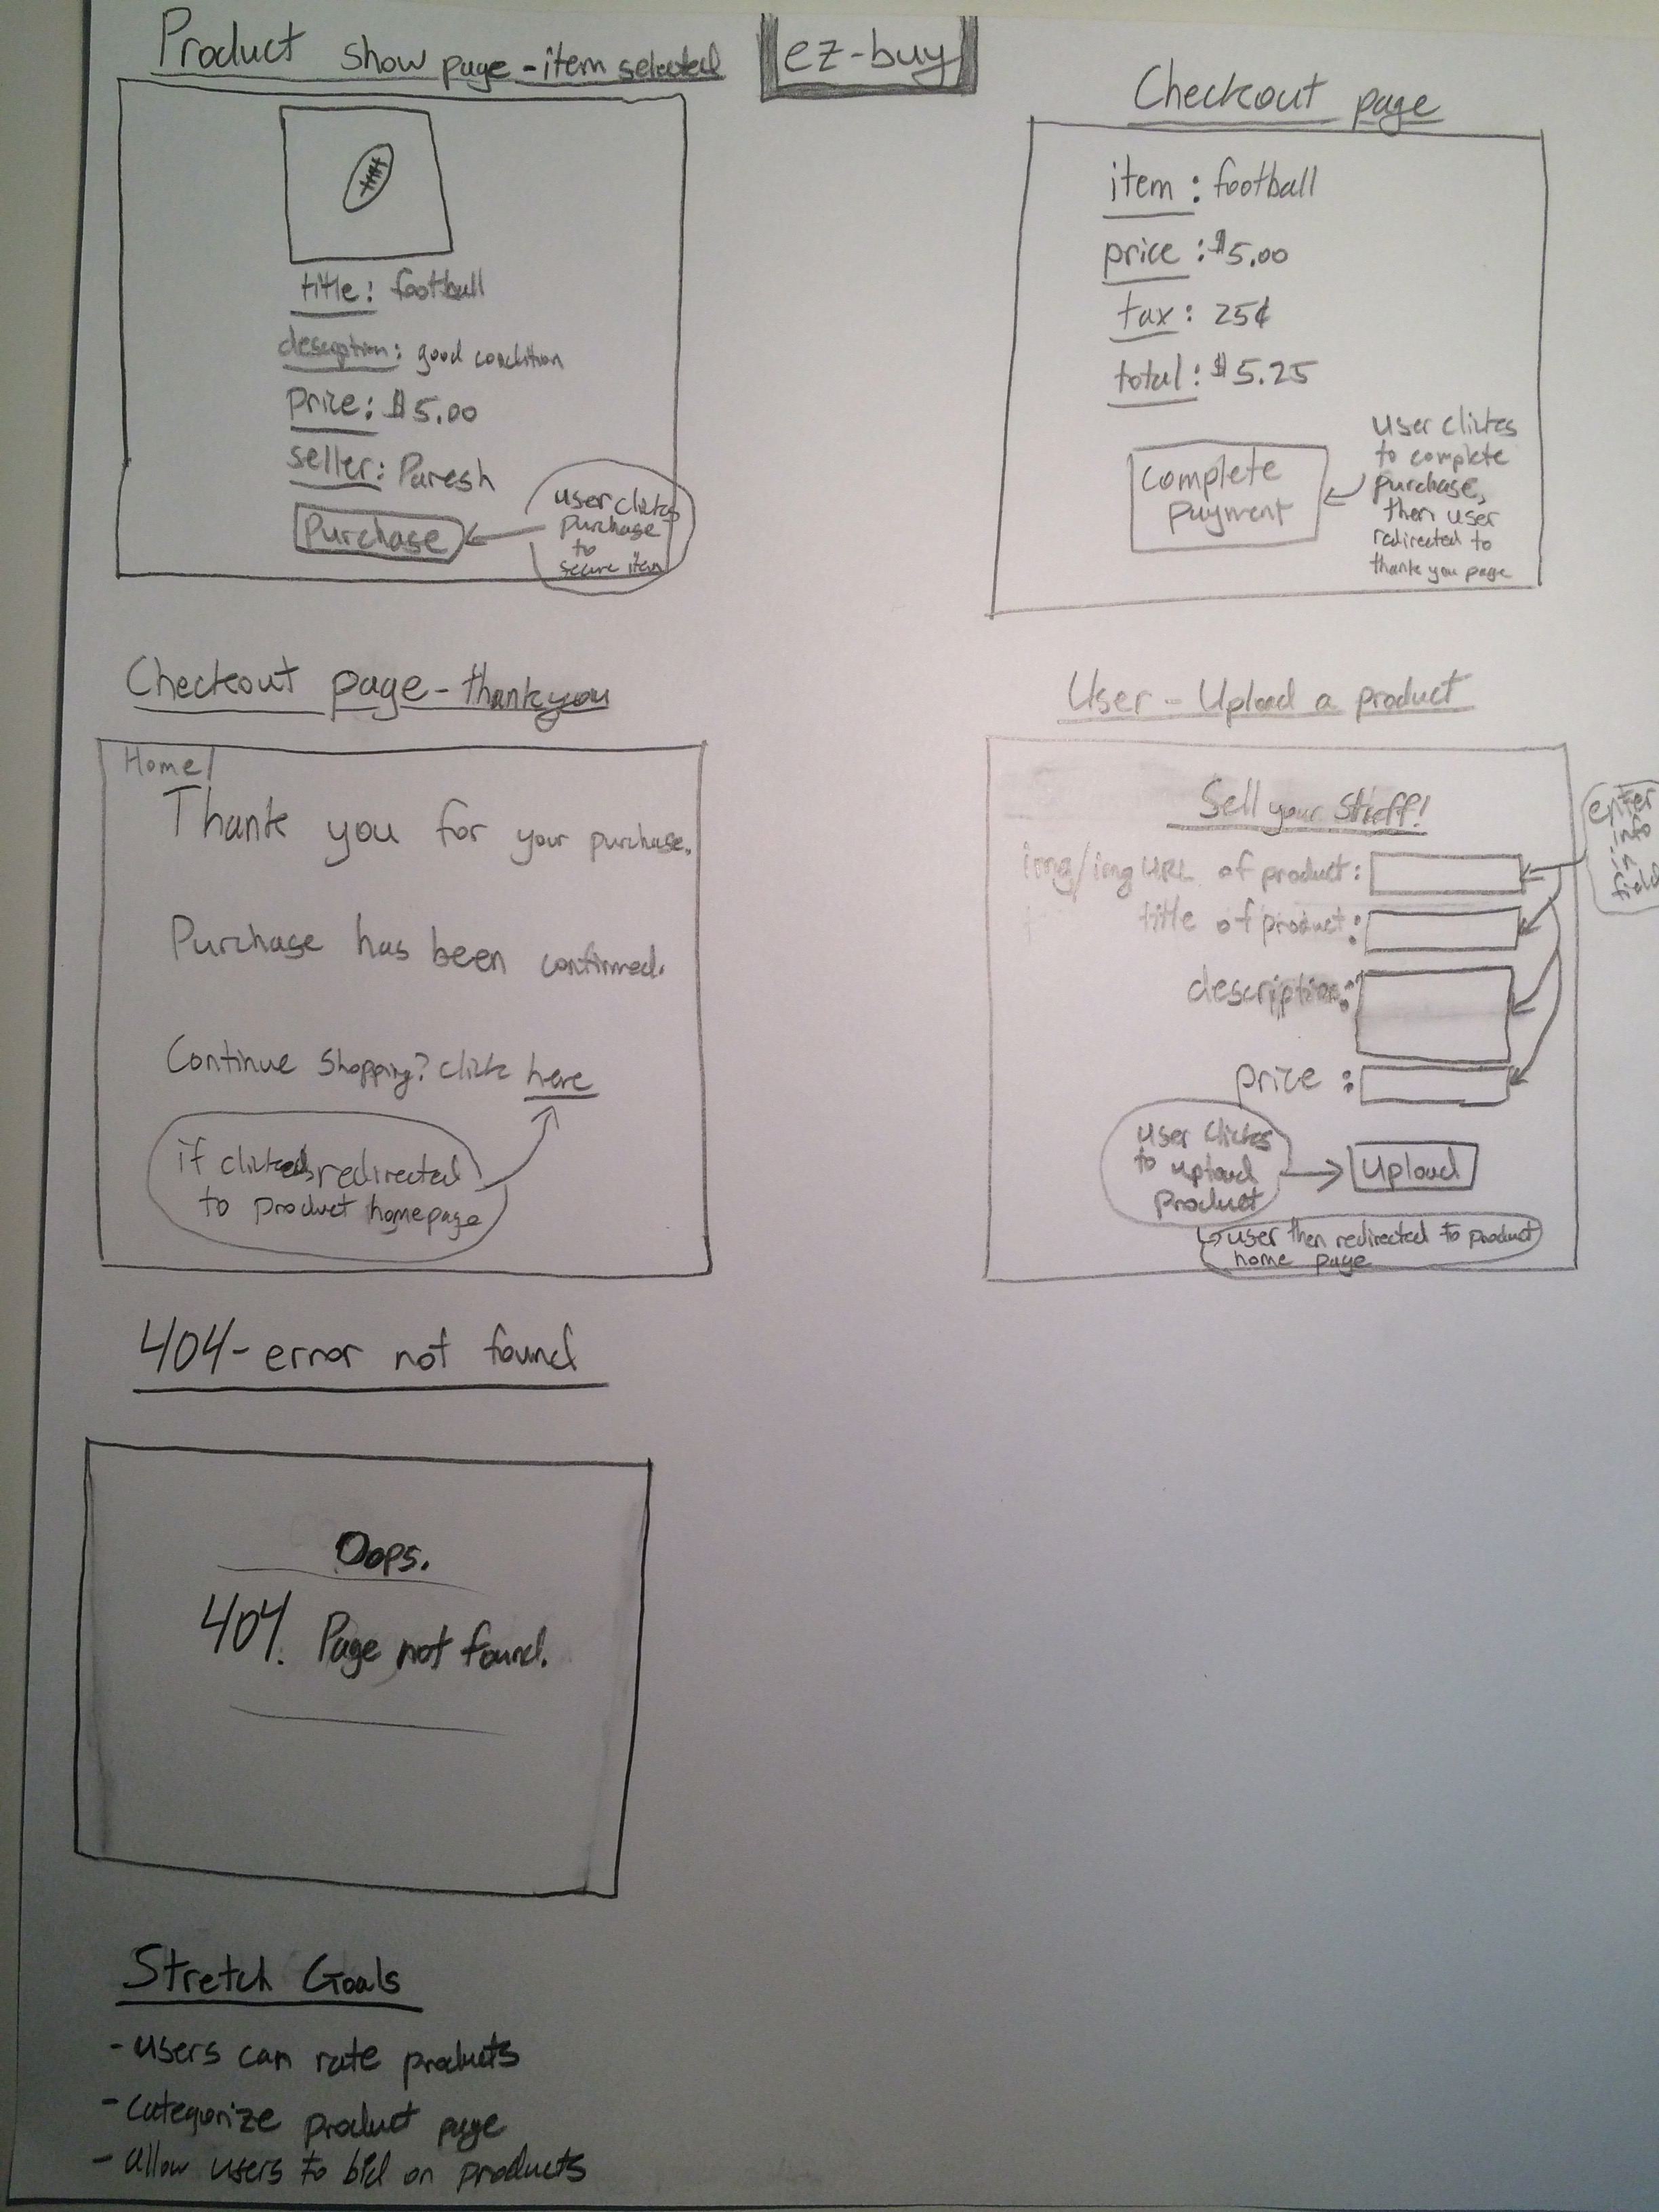 Product show page - item selected
ez-buy
title: football
description: good condition
price: $5.00
seller: Paresh
Purchase
user clicks
purchase
to
secure item
Checkout page
item: football
price: $5.00
tax: 25¢
total: $5.25
Complete
Payment
user clicks
to complete
purchase,
then user
redirected to
thank you page
Checkout page - thank you
Home
Thank you for your purchase.
Purchase has been confirmed.
Continue shopping? click here
if clicked redirected
to product homepage
User - Upload a product
Sell your stuff!
img/img URL of product:
title of product:
description:
price:
enter
info
in
field
user clicks
to upload
product
upload
user then redirected to product
home page
404 - error not found
Oops.
404. Page not found.
Stretch Goals
- users can rate products
- categorize product page
- allow users to bid on products